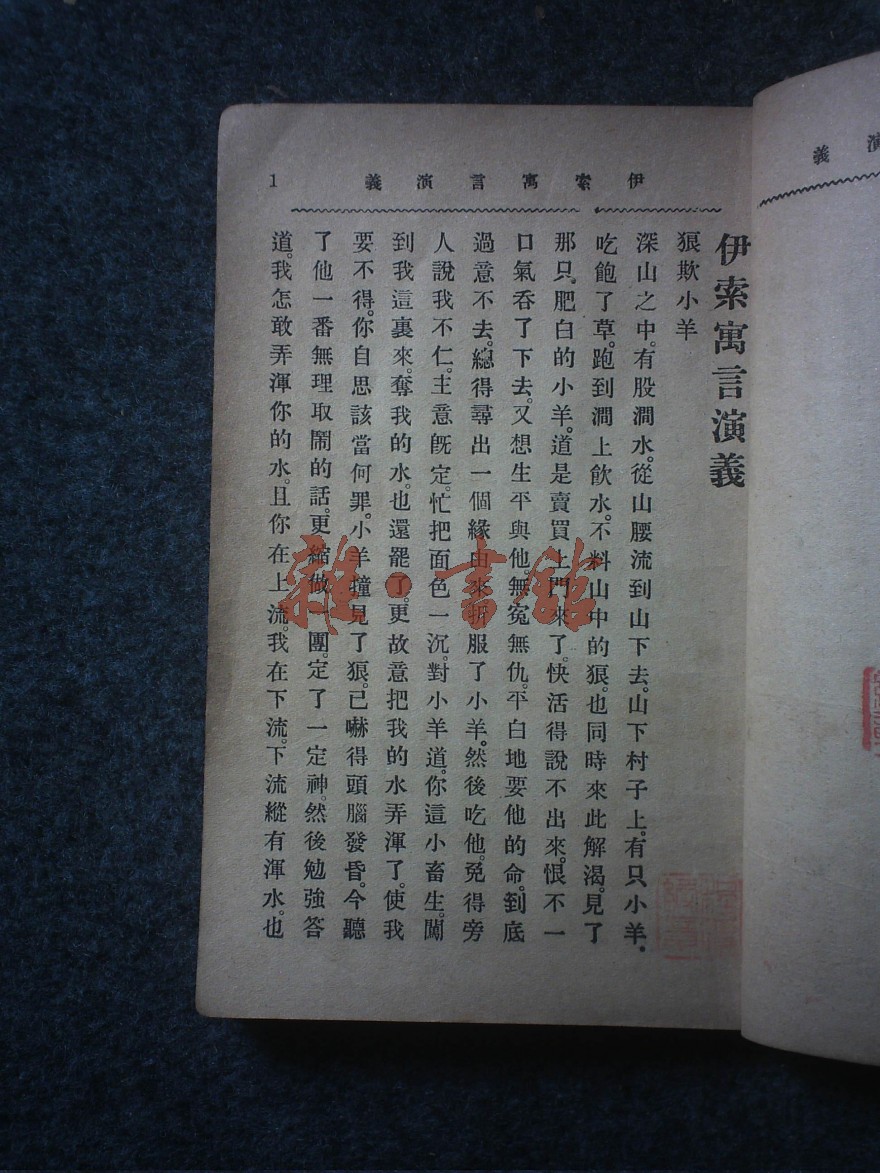 伊索寓言演義
1
演義
伊索寓言演義
狼欺小羊
深山之中。有股澗水。從山腰流到山下去。山下村子上。有只小羊。
吃飽了草。跑到澗上飲水。不料山中的狼。也同時來此解渴。見了
那只。肥白的小羊。道是賣買上門來了。快活得說不出來。恨不一
口氣吞了下去。又想生平與他。無冤無仇。平白地要他的命。到底
過意不去。總得尋出一個緣由來折服了小羊。然後吃他。免得旁
人說我不仁。主意既定。忙把面色一沉。對小羊道。你這小畜生。闖
到我這裏來。奪我的水。也還罷了。更故意把我的水弄渾了。使我
要不得。你自思該當何罪。小羊撞見了狼。已嚇得頭腦發昏。今聽
了他一番無理取鬧的話。更縮做一團。定了一定神。然後勉強答
道。我怎敢弄渾你的水。且你在上流。我在下流。下流縱有渾水。也
雜·書館